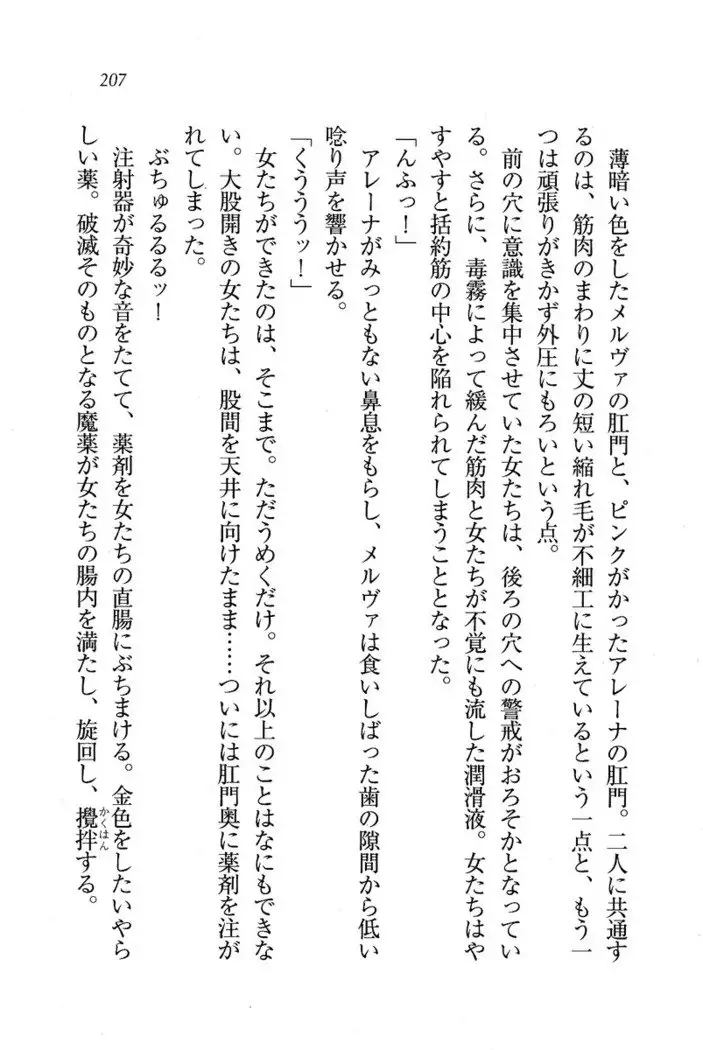 207
薄暗い色をしたメルヴァの肛門と、ピンクがかったアレーナの肛門。二人に共通す
るのは、筋肉のまわりに丈の短い縮れ毛が不細工に生えているという一点と、もう一
つは頑張りがきかず外圧にもろいという点。
前の穴に意識を集中させていた女たちは、後ろの穴への警戒がおろそかとなってい
る。さらに、毒霧によって緩んだ筋肉と女たちが不覚にも流した潤滑液。女たちはや
すやすと括約筋の中心を陥れられてしまうこととなった。
「んふっ！」
アレーナがみっともない鼻息をもらし、メルヴァは食いしばった歯の隙間から低い
唸り声を響かせる。
「くうううッ！」
女たちができたのは、そこまで。ただうめくだけ。それ以上のことはなにもできな
い。大股開きの女たちは、股間を天井に向けたまま……ついには肛門奥に薬剤を注が
れてしまった。
ぶちゅるるるッ！
注射器が奇妙な音をたてて、薬剤を女たちの直腸にぶちまける。金色をしたいやら
しい薬。破滅そのものとなる魔薬が女たちの腸内を満たし、旋回し、攪拌する。
かくはん